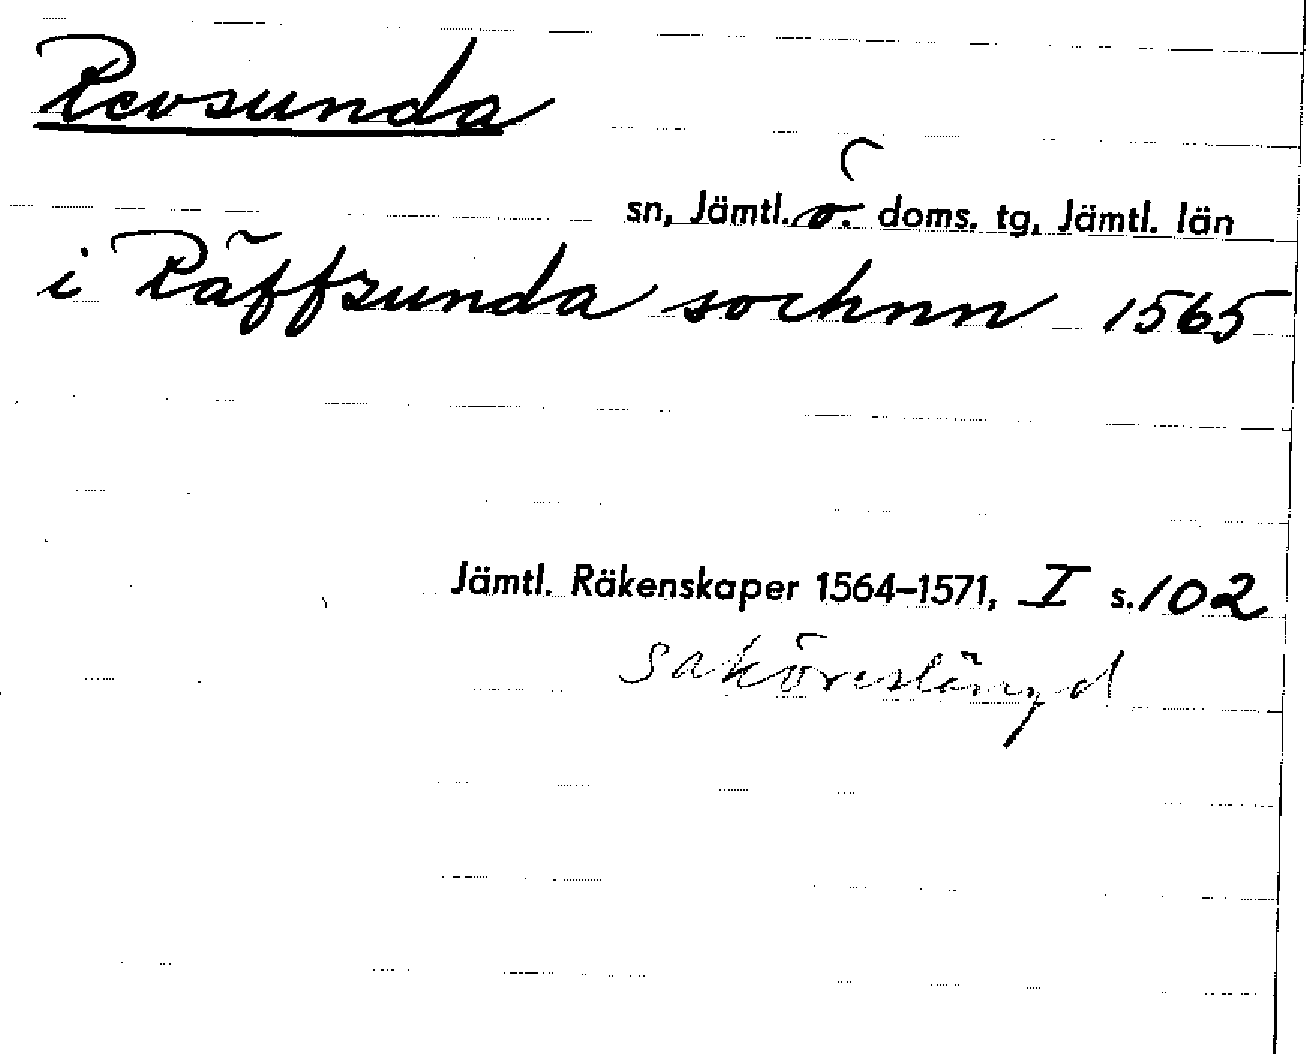 Revsunda
sn, Jämtl. ö. doms. tg, Jämtl. län
i Räffzunda sochnn 1565
Jämtl. Räkenskaper 1564–1571, I s. 102
saköreslängd